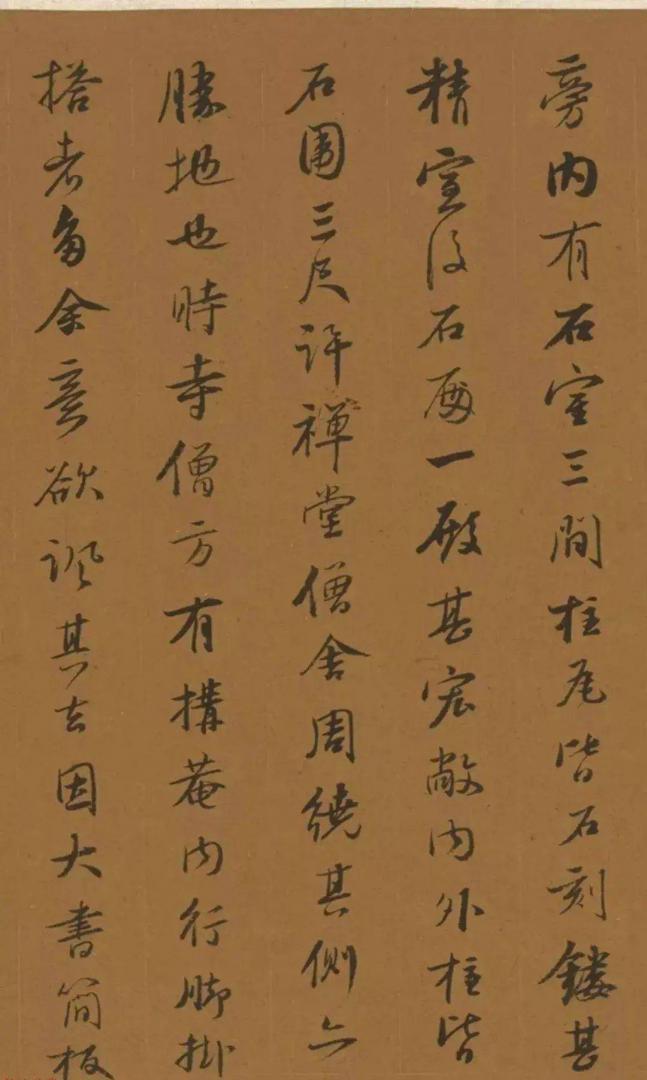 旁内有石室三間柱瓦皆石刻鏤甚
精室後石殿一殿甚宏敞内外柱皆
石圍三尺許禪堂僧舍周繞其側亦
勝地也時寺僧方有構菴内行脚掛
搭者多余意欲諷其去因大書簡板